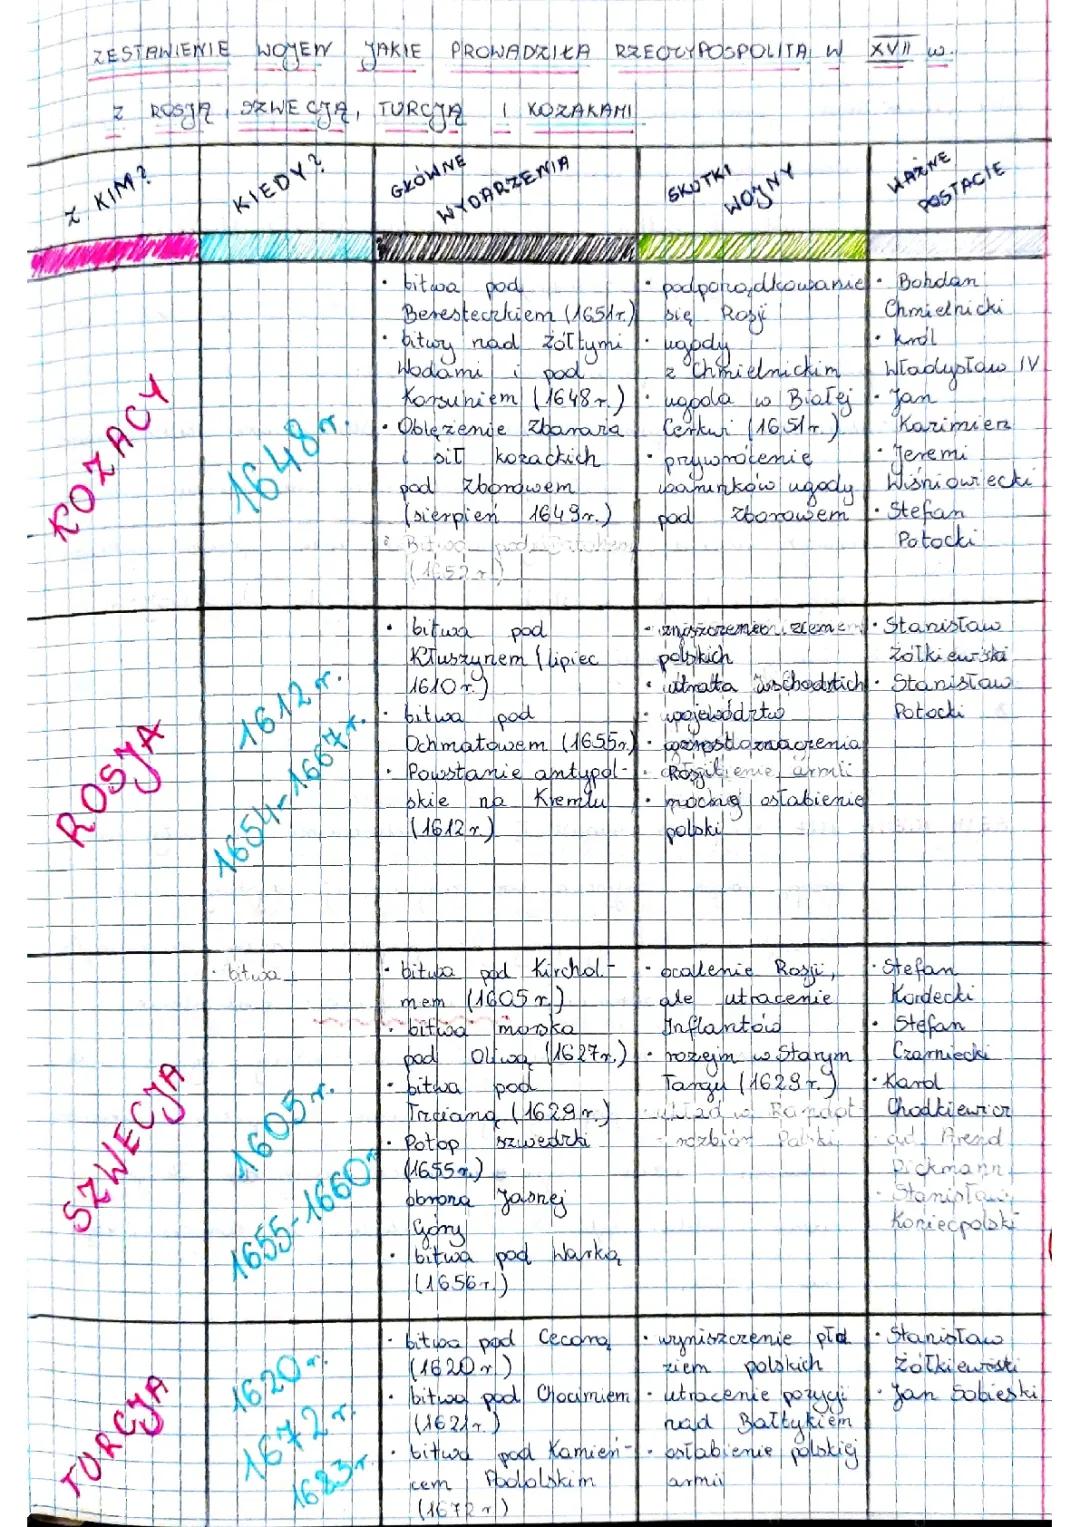 ZESTAWIENIE WOJEN JAKIE PROWADZIŁA RZECZYPOSPOLITA W XVII w.
Z ROSJĄ, SZWECJĄ, TURCJĄ I KOZAKAMI
Z KIM?
KIEDY?
GŁÓWNE
WYDARZENIA
SKUTKI
WOJNY
WAŻNE
POSTACIE
KOZACY
1648 r.
• bitwa pod
Beresteczkiem (1651r.)
• bitwy nad Żółtymi
Wodami i pod
Korsuniem (1648r.)
• Oblężenie Zbaraża
i sił kozackich
pod Zborowem
(sierpień 1649r.)
• Bitwa pod
(1652r.)
• podporządkowanie
się Rosji
• ugody
z Chmielnickim
• ugoda w Białej
Cerkwi (1651r.)
• przywrócenie
warunków ugody
pod Zborowem
• Bohdan
Chmielnicki
• król
Władysław IV
• Jan
Kazimierz
• Jeremi
Wiśniowiecki
• Stefan
Potocki
ROSJA
1612 r.
1654-1667r.
• bitwa pod
Kłuszynem (lipiec
1610r.)
• bitwa pod
Ochmatowem (1655r.)
• Powstanie antypol-
skie na Kremlu
(1612r.)
• zniszczenie ziem
polskich
• utrata wschodnich
• województw
• wzrost znaczenia
• Rozbicie armii
• mocne osłabienie
polski
• Stanisław
Żółkiewski
• Stanisław
Potocki
SZWECJA
• bitwa
1605 r.
1655-1660r
• bitwa pod Kirchol-
mem (1605r.)
• bitwa morska
pod Oliwą (1627r.)
• bitwa pod
Trzcianą (1629r.)
• Potop szwedzki
(1655r.)
obrona Jasnej
Góry
• bitwa pod Warką
(1656r.)
• ocalenie Rosji,
ale utracenie
Inflantów
• rozejm w Starym
Targu (1629r.)
• układ w Radnot
- rozbiór Polski
• Stefan
Kordecki
• Stefan
Czarniecki
• Karol
Chodkiewicz
Arend
Dickmann
• Stanisław
Koniecpolski
TURCJA
1620 r.
1672 r.
1683r.
• bitwa pod Cecorą
(1620r.)
• bitwa pod Chocimiem
(1621r.)
• bitwa pod Kamień-
cem Podolskim
(1672r.)
• wyniszczenie płd
ziem polskich
• utracenie pozycji
nad Bałtykiem
• osłabienie polskiej
armii
• Stanisław
Żółkiewski
• Jan Sobieski